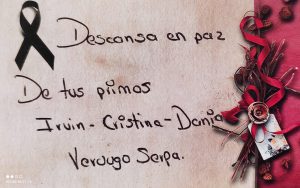 Descansa en paz
De tus primos
Irvin - Cristina - Dania
Verdugo Serpa.